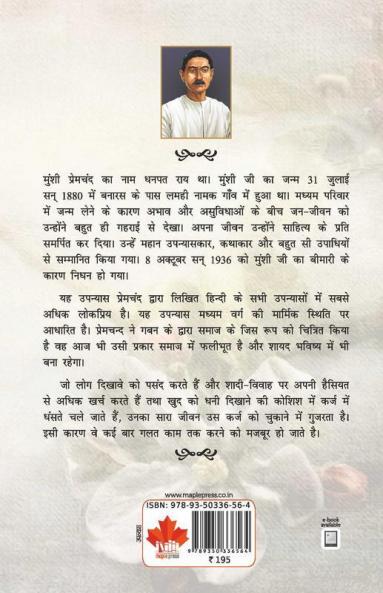 मुंशी प्रेमचंद का नाम धनपत राय था। मुंशी जी का जन्म 31 जुलाई
सन् 1880 में बनारस के पास लमही नामक गाँव में हुआ था। मध्यम परिवार
में जन्म लेने के कारण अभाव और असुविधाओं के बीच जन-जीवन को
उन्होंने बहुत ही गहराई से देखा। अपना जीवन उन्होंने साहित्य के प्रति
समर्पित कर दिया। उन्हें महान उपन्यासकार, कथाकार और बहुत सी उपाधियों
से सम्मानित किया गया। 8 अक्टूबर सन् 1936 को मुंशी जी का बीमारी के
कारण निधन हो गया।
यह उपन्यास प्रेमचंद द्वारा लिखित हिन्दी के सभी उपन्यासों में सबसे
अधिक लोकप्रिय है। यह उपन्यास मध्यम वर्ग की मार्मिक स्थिति पर
आधारित है। प्रेमचन्द ने गबन के द्वारा समाज के जिस रूप को चित्रित किया
है वह आज भी उसी प्रकार समाज में फलीभूत है और शायद भविष्य में भी
बना रहेगा।
जो लोग दिखावे को पसंद करते हैं और शादी-विवाह पर अपनी हैसियत
से अधिक खर्च करते हैं तथा खुद को धनी दिखाने की कोशिश में कर्ज में
धंसते चले जाते हैं, उनका सारा जीवन उस कर्ज को चुकाने में गुजरता है।
इसी कारण वे कई बार गलत काम तक करने को मजबूर हो जाते है।
www.maplepress.co.in
ISBN: 978-93-50336-56-4
उपन्यास
maple press
9 789350 336564
₹ 195
e-book
available